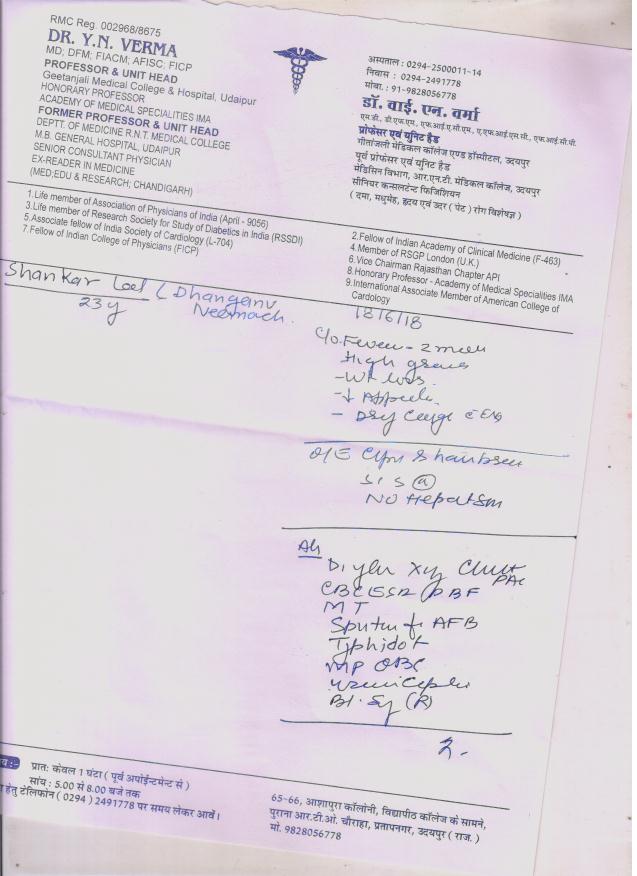 RMC Reg. 002968/8675
DR. Y.N. VERMA
MD; DFM; FIACM; AFISC; FICP
PROFESSOR & UNIT HEAD
Geetanjali Medical College & Hospital, Udaipur
HONORARY PROFESSOR
ACADEMY OF MEDICAL SPECIALITIES IMA
FORMER PROFESSOR & UNIT HEAD
DEPTT. OF MEDICINE R.N.T. MEDICAL COLLEGE
M.B. GENERAL HOSPITAL, UDAIPUR
SENIOR CONSULTANT PHYSICIAN
EX-READER IN MEDICINE
(MED;EDU & RESEARCH; CHANDIGARH)
अस्पताल : 0294-2500011-14
निवास : 0294-2491778
मोबा. : 91-9828056778
डॉ. वाई. एन. वर्मा
एम.डी., डी.एफ.एम., एफ.आई.ए.सी.एम., ए.एफ.आई.एस.सी., एफ.आई.सी.पी.
प्रोफेसर एवं यूनिट हैड
गीतांजली मेडिकल कॉलेज एण्ड हॉस्पीटल, उदयपुर
पूर्व प्रोफेसर एवं यूनिट हैड
मेडिसिन विभाग, आर.एन.टी. मेडिकल कॉलेज, उदयपुर
सीनियर कन्सलटेन्ट फिजिशियन
( दमा, मधुमेह, हृदय एवं उदर ( पेट ) रोग विशेषज्ञ )
1.Life member of Association of Physicians of India (April - 9056)
3.Life member of Research Society for Study of Diabetics in India (RSSDI)
5.Associate fellow of India Society of Cardiology (L-704)
7.Fellow of Indian College of Physicians (FICP)
2.Fellow of Indian Academy of Clinical Medicine (F-463)
4.Member of RSGP London (U.K.)
6.Vice Chairman Rajasthan Chapter API
8.Honorary Professor - Academy of Medical Specialities IMA
9.International Associate Member of American College of
Cardiology
Shankar Lal ( Dhanganv
23 y Neemach.
18/6/18
C/o. Fever - 2
High
- Wt loss.
- ↓
- Dry
O/E
S1 S2
No
CBC ESR PBF
MT
Sputum f AFB
Typhidot
MP QBC
Bl. Sy (R)
2.
प्रात: केवल 1 घंटा ( पूर्व अपॉईन्टमेन्ट से )
सांय : 5.00 से 8.00 बजे तक
हेतु टेलिफोन ( 0294 ) 2491778 पर समय लेकर आवें।
65-66, आशापुरा कॉलोनी, विद्यापीठ कॉलेज के सामने,
पुराना आर.टी.ओ. चौराहा, प्रतापनगर, उदयपुर ( राज. )
मो. 9828056778